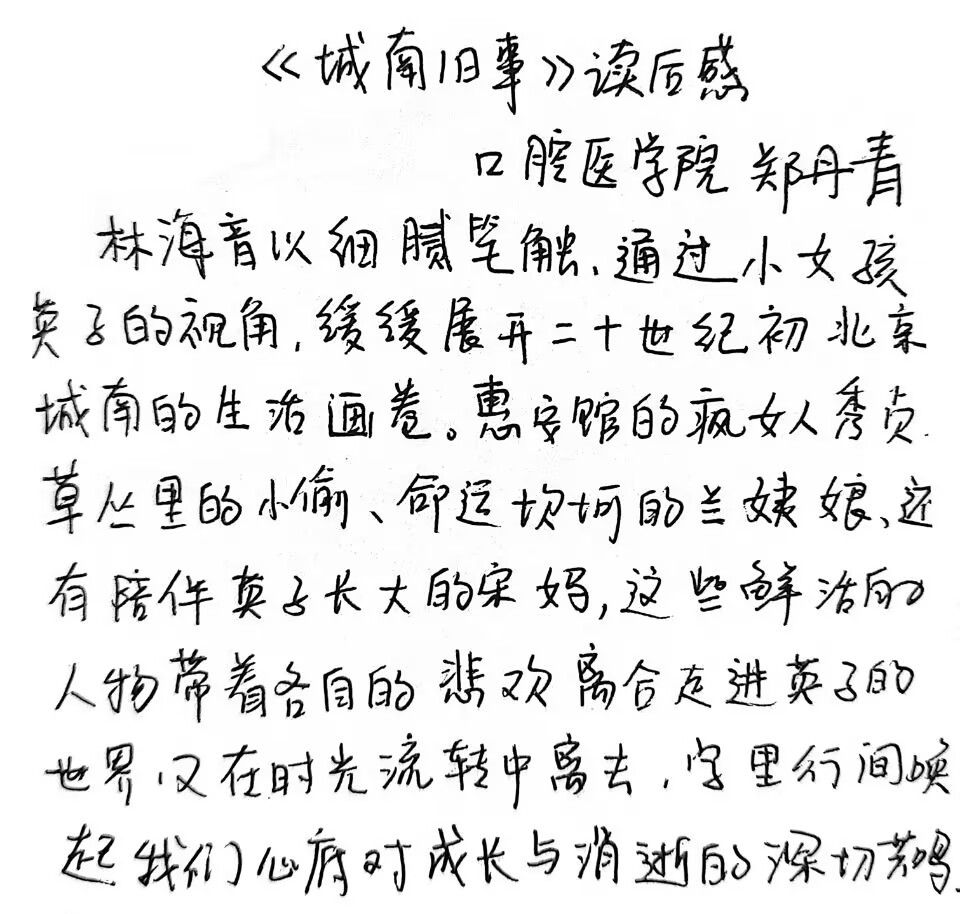 《城南旧事》读后感
口腔医学院 郑丹青
林海音以细腻笔触、通过小女孩
英子的视角,缓缓展开二十世纪初北京
城南的生活画卷。惠安馆的疯女人秀贞
草丛里的小偷、命运坎坷的兰姨娘、还
有陪伴英子长大的宋妈,这些鲜活的
人物带着各自的悲欢离合走进英子的
世界,又在时光流转中离去,字里行间唤
起我们心底对成长与消逝的深切共鸣.